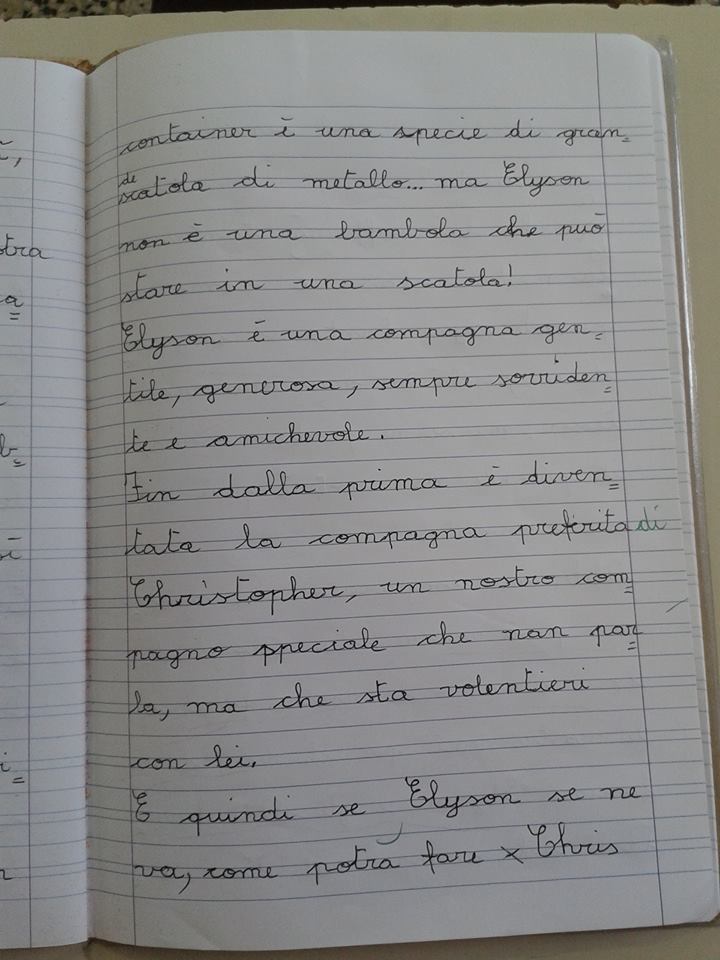 container è una specie di gran=
de
scatola di metallo... ma Elyson
non è una bambola che può
stare in una scatola!
Elyson è una compagna gen=
tile, generosa, sempre sorriden=
te e amichevole.
Fin dalla prima è diven=
tata la compagna preferita di
Christopher, un nostro com=
pagno speciale che non par=
la, ma che sta volentieri
con lei.
E quindi se Elyson se ne
va, come potrà fare x Chris
tra
a=